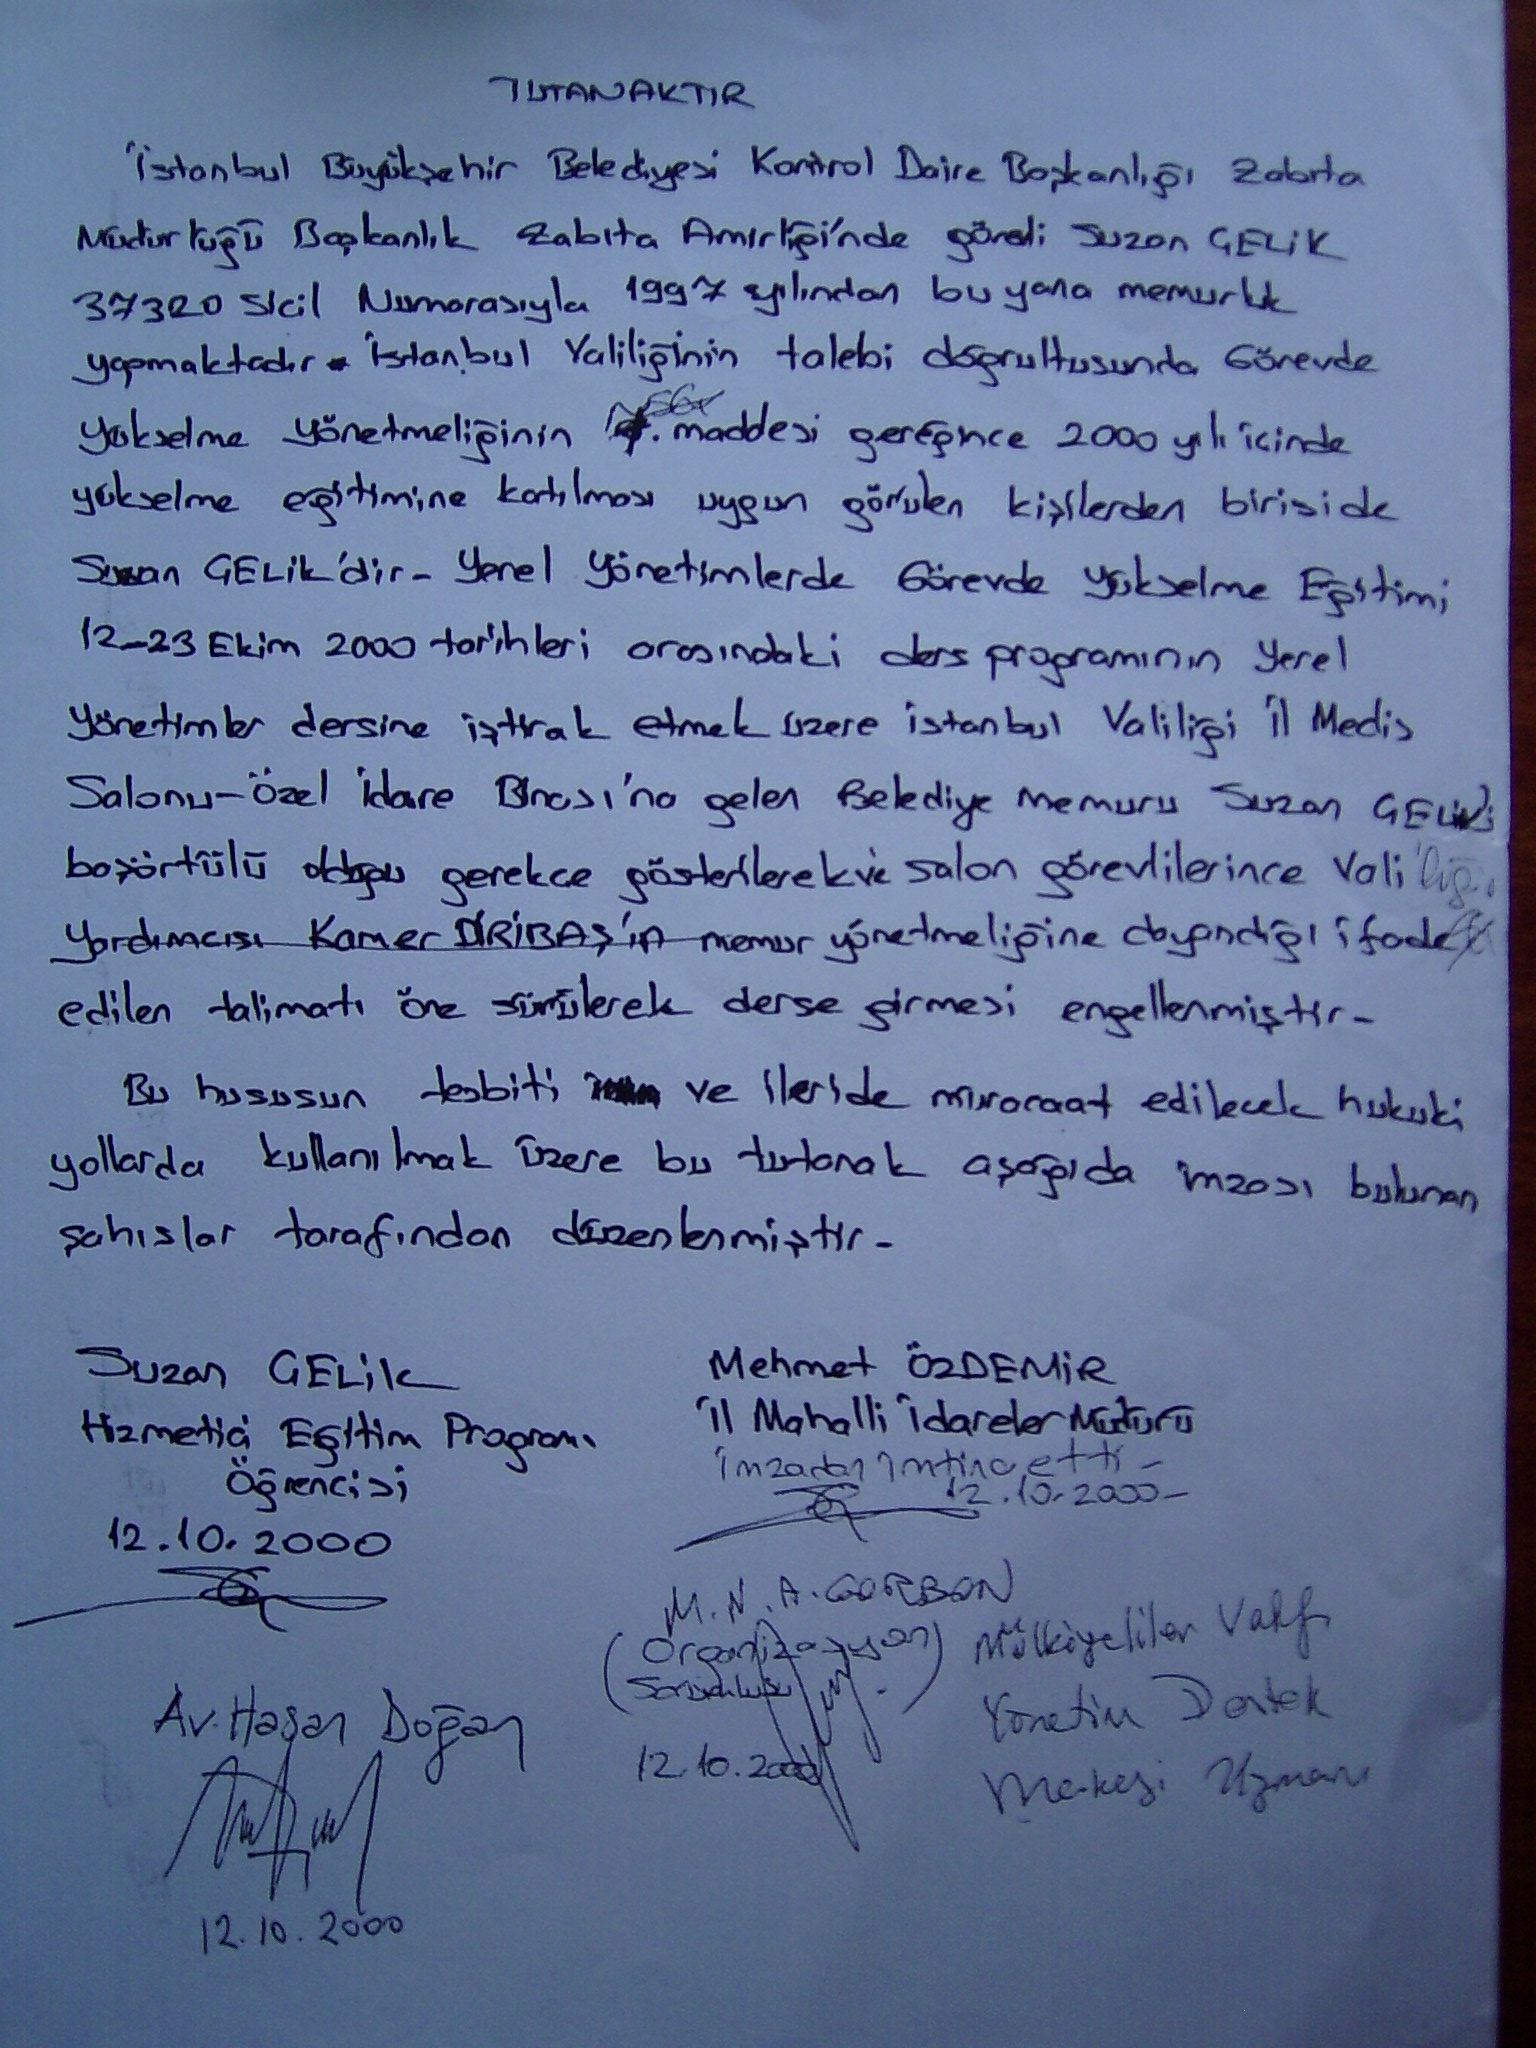 TUTANAKTIR
İstanbul Büyükşehir Belediyesi Kontrol Daire Başkanlığı Zabıta
Müdürlüğü Başkanlık Zabıta Amirliği'nde görevli Suzan GELİK
37320 Sicil Numarasıyla 1997 yılından bu yana memurluk
yapmaktadır. İstanbul Valiliğinin talebi doğrultusunda Görevde
Yükselme Yönetmeliğinin maddesi gereğince 2000 yılı içinde
yükselme eğitimine katılması uygun görülen kişilerden biriside
Suzan GELİK'dir- Yerel Yönetimlerde Görevde Yükselme Eğitimi
12-23 Ekim 2000 tarihleri arasındaki ders programının Yerel
Yönetimler dersine iştirak etmek üzere İstanbul Valiliği İl Meclis
Salonu-Özel İdare Binası'na gelen Belediye memuru Suzan GELİK
başörtülü olduğu gerekçe gösterilerek ve salon görevlilerince Valiliği
Yardımcısı Kamer DİRİBAŞ'ın memur yönetmeliğine dayandığı ifade
edilen talimatı öne sürülerek derse girmesi engellenmiştir-
Bu hususun tesbiti ve ileride müracaat edilecek hukuki
yollarda kullanılmak üzere bu tutanak aşağıda imzası bulunan
şahıslar tarafından düzenlenmiştir-
Suzan GELİK Mehmet ÖZDEMİR
Hizmetiçi Eğitim Programı İl Mahalli İdareler Müdürü
Öğrencisi İmzadan imtina etti-
12.10.2000 12.10.2000-
M.N.A.
(Organizasyon Mülkiyeliler Vakfı
Sorumlusu) Yönetim Destek
Av. Hasan Doğan
12.10.2000 Merkezi Uzmanı
12.10.2000